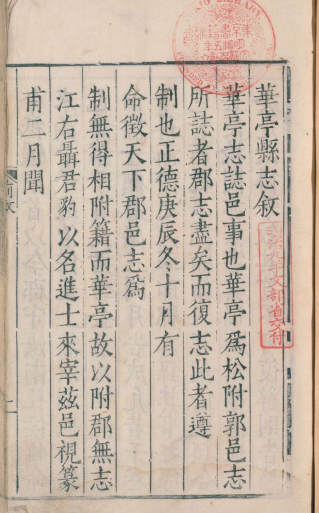 華亭縣志敘
華亭志誌邑事也華亭爲松附郭邑志
所誌者郡志盡矣而復志此者遵
制也正德庚辰冬十月有
命徵天下郡邑志爲
制無得相附籍而華亭故以附郡無志
江右聶君豹以名進士來宰茲邑視篆
甫二月聞